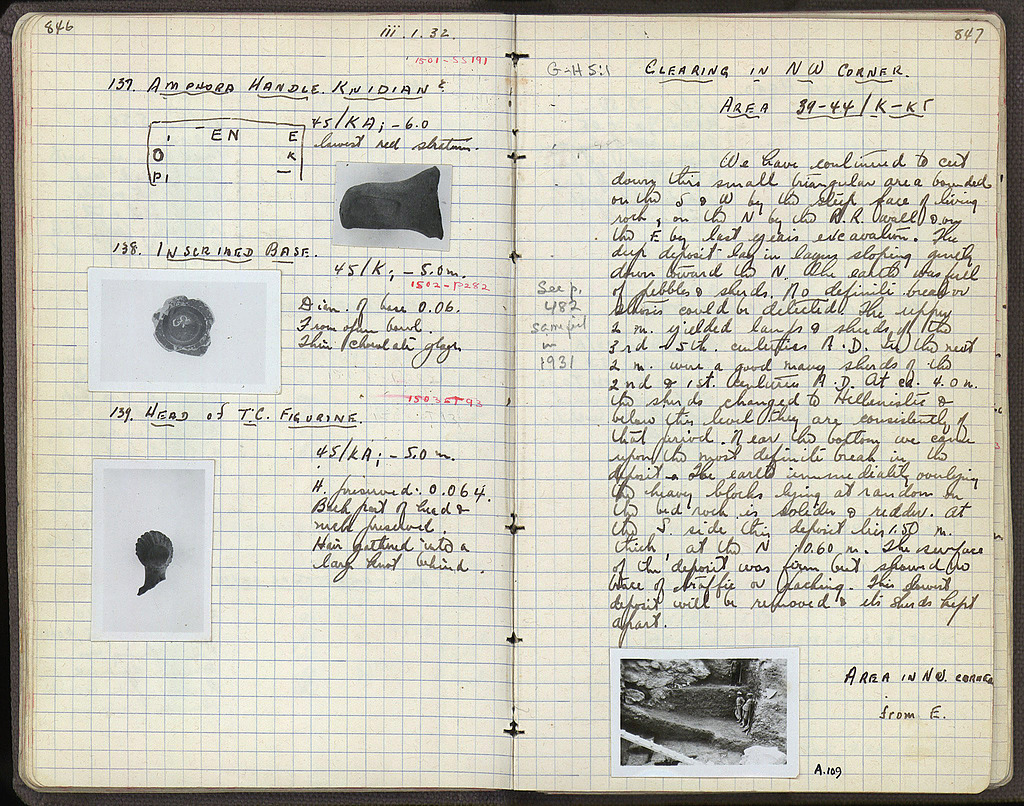 846
iii.1.32.
1501-SS191
137. AMPHORA HANDLE. KNIDIAN?
45/KA; -6.0
lowest red stratum.
EN E
O K
PI
138. INSCRIBED BASE.
45/K; -5.0m.
1502-P282
Diam. of base 0.06.
From open bowl.
Thin chocolate glaze.
1503-T93
139. HEAD of T.C. FIGURINE.
45/KA; -5.0 m.
H. preserved: 0.064.
Back part of head &
neck preserved.
Hair gathered into a
large knot behind.
847
G-H 5:1
CLEARING IN NW CORNER.
AREA 39-44/K-
We have continued to cut
down this small triangular area bounded
on the S & W by the steep face of living
rock, on the N by the R.R. wall & on
the E by last year's excavation. The
deep deposit lay in layers sloping gently
down toward the N. The earth was full
of pebbles & sherds. No definite break or
could be detected. The upper
2 m. yielded lamps & sherds of the
3rd - 5th. centuries A.D. In the next
2 m. were a good many sherds of the
2nd & 1st. centuries A.D. At ca. 4.0 m.
the sherds changed to Hellenistic &
below this level they are consistently of
that period. Near the bottom we came
upon the most definite break in the
deposit. The earth immediately overlying
the heavy blocks lying at random on
the bed rock is solider & redder. At
the S. side this deposit lies 1.50 m.
thick, at the N 0.60 m. The surface
of the deposit was firm but showed no
trace of traffic or packing. This lowest
deposit will be removed & its sherds kept
apart.
See p.
482
in
1931
AREA IN NW. CORNER
from E.
A.109